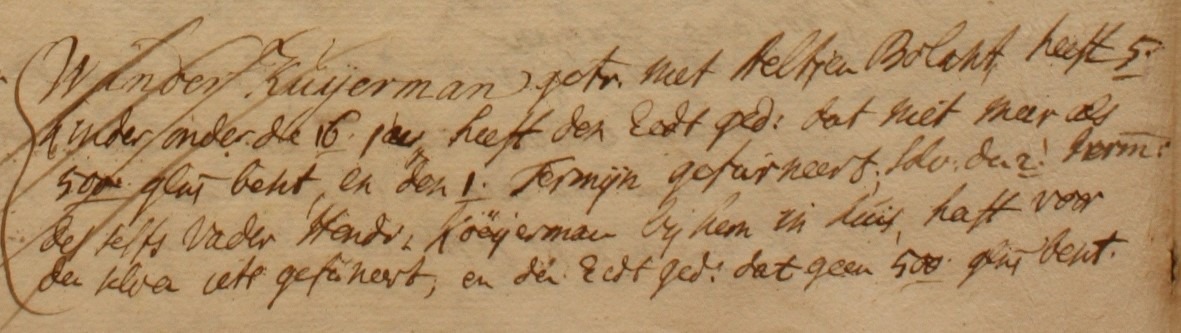 Wander Kuijerman getr. met Aeltjen Bolcht, heeft 5.
kinder onder de 16. jaer, heeft den Eedt ged: dat niet meer als
500 glns besit, en den 1. Termijn gefurneert, solv. den 2. Term:
des selfs Vader Hendr. Köeijerman bij hem in huis, haft voor
den selven gefurneert, en den Eedt ged: dat geen 500 glns besit.